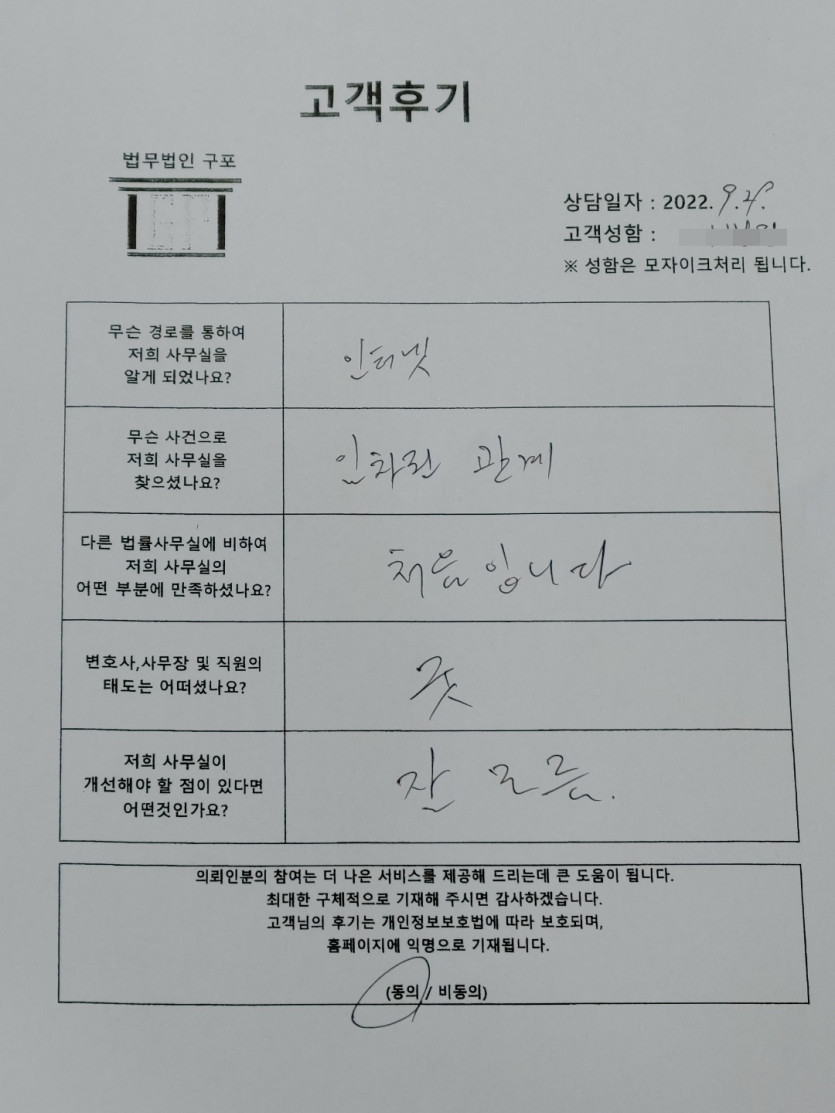 고객후기
법무법인 구포
상담일자 : 2022. 9. 28.
고객성함 :
※ 성함은 모자이크처리 됩니다.
무슨 경로를 통하여
저희 사무실을
알게 되었나요?
인터넷
무슨 사건으로
저희 사무실을
찾으셨나요?
임차권 관계
다른 법률사무실에 비하여
저희 사무실의
어떤 부분에 만족하셨나요?
처음입니다
변호사,사무장 및 직원의
태도는 어떠셨나요?
굿
저희 사무실이
개선해야 할 점이 있다면
어떤것인가요?
잘 모름.
의뢰인분의 참여는 더 나은 서비스를 제공해 드리는데 큰 도움이 됩니다.
최대한 구체적으로 기재해 주시면 감사하겠습니다.
고객님의 후기는 개인정보보호법에 따라 보호되며,
홈페이지에 익명으로 기재됩니다.
(동의 / 비동의)